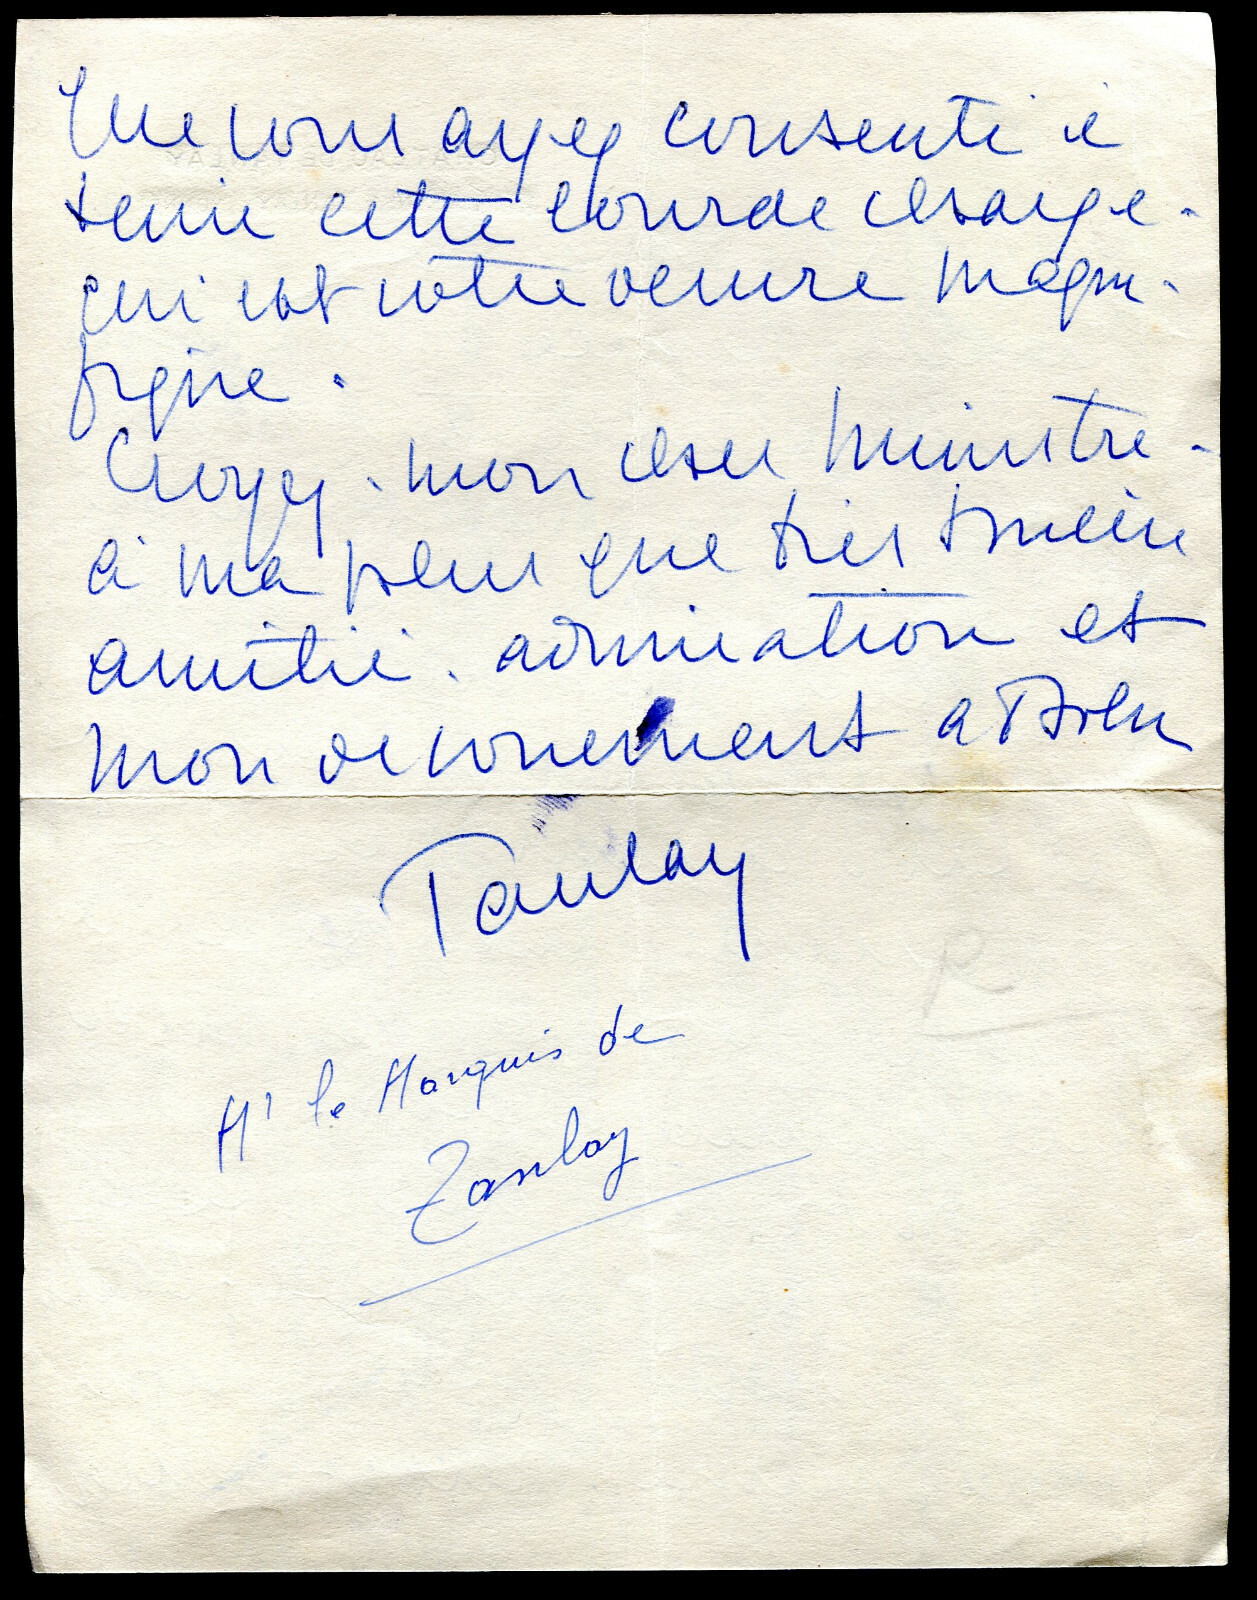 Que vous ayez consenti à
tenir cette lourde charge.
qui est votre oeuvre magni-
fique.
Croyez. mon cher Ministre.
à ma plus que très sincère
amitié. admiration et
mon dévouement absolu
Tanlay
Mr le Marquis de
Tanlay
R